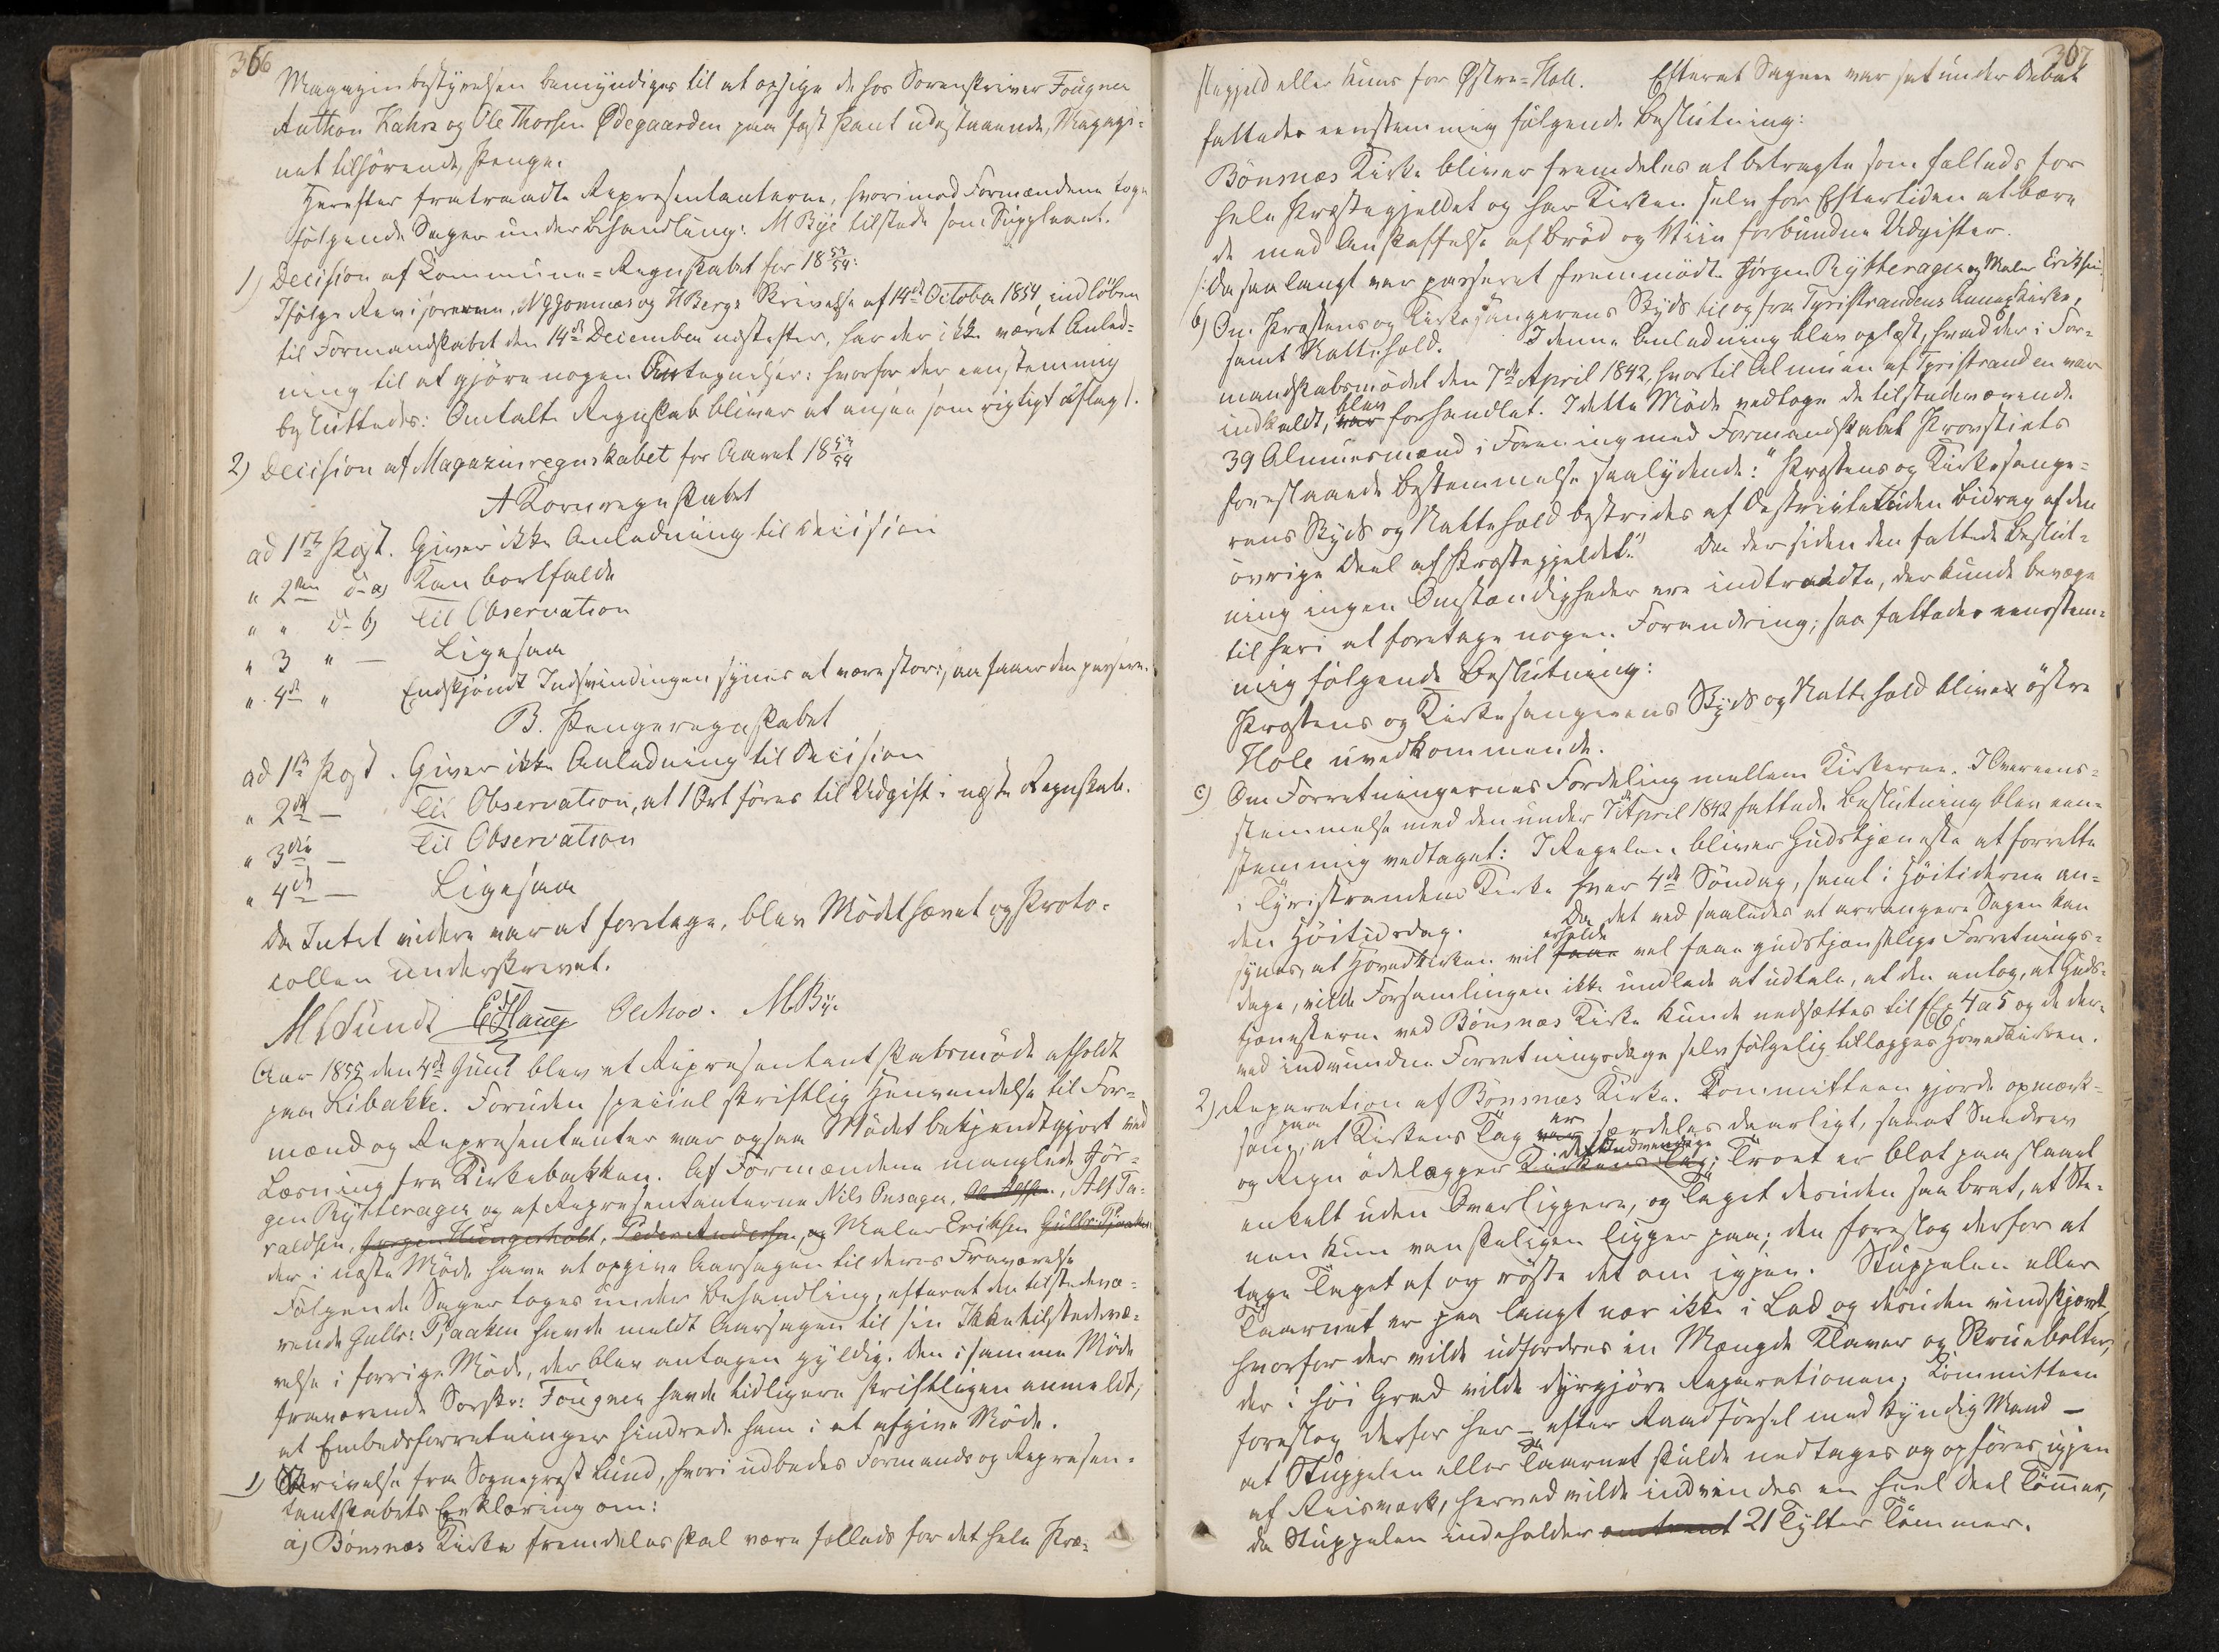 366
Magazinbestyrelsen bemyndiges til at opsige de hos Sorenskriver Fougner
Anthon Kahrs og Ole Thorsen Ødegaarden paa fast Pant udestaaende, Magazi-
net tilhörende, Penge.
Herefter fratraadte Repræsentanterne, hvorimod Formændene toge
følgende Sager under Behandling: M Bye tilstede som Suppleant.
1) Decision af Kommune-Regnskabet for 18 53/54:
Ifølge Revisorerne, N Gjonnæs og H Bergs Skrivelse af 14de October 1854, indløben
til Formandskabet den 14de December næstefter, har der ikke været Anled-
ning til at gjöre nogen Antegnelser: hvorfor der eenstemmig
besluttedes: Omtalte Regnskab bliver at ansee som rigtigt aflagt.
2) Decision af Magazinregnskabet for Aaret 18 53/54
A Kornregnskabet
ad 1ste Post. Giver ikke Anledning til Decision
" 2den d- a) Kan bortfalde
" " d- b) Til Observation
" 3 " — Ligesaa
" 4de " Endskjöndt Indsvindingen synes at være stor, saa faaer den passere.
B. Pengeregnskabet
ad 1ste Post. Giver ikke Anledning til Decision
" 2de — Til Observation, at 1 Ort föres til Udgift i næste Regnskab.
" 3die — Til Observation
" 4de — Ligesaa
Da Intet videre var at foretage, blev Mödet hævet og Proto-
collen underskrevet.
M Sundt E Haug Ole Moe. M Bye
Aar 1855 den 4de Juni blev et Repræsentantskabsmöde afholdt
paa Libakke. Foruden speciel skriftlig Henvendelse til For-
mænd og Repræsentanter var ogsaa Mödet bekjendtgjort ved
Læsning fra Kirkebakken. Af Formændene manglede Jör-
gen Rytterager og af Repræsentanterne Nils Onsager, , Alf Ta-
raldsen, Jørgen Hungerholt, Peder Andersen, og Maler Eriksen Gulbr: Pjaaken
der i næste Möde have at opgive Aarsagen til deres Fraværelse
Følgende Sager toges under Behandling, efterat den tilstedevæ-
rende Gulbr: Pjaaken havde meldt Aarsagen til sin Ikketilstedevæ-
relse i forrige Möde, der blev antagen gyldig. Den i samme Möde
fraværende Sorskr: Fougner havde tidligere skriftligen anmeldt,
at Embedsforretninger hindrede ham i at afgive Möde.
1) Skrivelse fra Sogneprest Lund, hvori udbedes Formands og Repræsen-
tantskabets Erklæring om:
a) Bönsnæs Kirke fremdeles skal være fælleds for det hele Præ-
367
stegjeld eller kuns for Østre-Hole. Efterat Sagen var sat under Debat
fattedes eenstemmig følgende Beslutning:
Bönsnæs Kirke bliver fremdeles at betragte som fælleds for
hele Præstegjeldet og har Kirken selv for Eftertiden at bære
de med Anskaffelse af Bröd og Viin forbundne Udgifter.
/: Da saa langt var passeret fremmödte Jörgen Rytterager og Maler Eriksen
b) Om Præstens og Kirkesangerens Skyds til og fra Tyristrandens Annexkirke,
samt Nattehold. I denne Anledning blev oplæst, hvad der i For-
mandskabsmödet den 7de April 1842, hvortil Almuen af Tyristranden var
indkaldt, var blev forhandlet. I dette Möde vedtoge de tilstedeværende
39 Almuesmænd i Forening med Formandskabet Provstiets
foreslaaede Bestemmelse saalydende: "Præstens og Kirkesange-
rens Skyds og Nattehold bestrides af Destriktet uden Bidrag af den
övrige Deel af Præstegjeldet." Da der siden den fattede Beslut-
ning ingen Omstændigheder ere indtraadte, der kunde bevæge
til heri at foretage nogen Forandring; saa fattedes eenstem-
mig følgende Beslutning:
Præstens og Kirkesangerens Skyds og Nattehold bliver östre
Hole uvedkommende.
c) Om Forretningernes Fordeling mellem Kirkerne. I Overeens-
stemmelse med den under 7de April 1842 fattede Beslutning blev een-
stemmig vedtaget: I Regelen bliver Gudstjeneste at forrette
i Tyristrandens Kirke hver 4de Söndag, samt i Höitiderne an-
den Höitidsdag. Da det ved saaledes at arrangere Sagen kan
synes, at Hovedkirken vil faae erholde vel faae gudstjenstlige Forretnings-
dage, vilde Forsamlingen ikke undlade at udtale, at den antog, at Guds-
tjenesterne ved Bönsnæs Kirke kunde nedsættes til f Ex 4 a 5 og de der-
ved indvundne Forretningsdage selvfølgelig tillægges Hovedkirken.
2) Reparation af Bönsnæs Kirke. Kommitteen gjorde opmærk-
som paa, at Kirkens Tag var er særdeles daarligt, samt Sneedrev
og Regn ödelægger Kirkens Tag det Indvendige; Troet er blot paaslaaet
enkelt uden Overliggere, og Taget desuden saa brat, at Ste-
nen kun vanskeligen ligger paa; den foreslog derfor at
tage Taget af og röste det om igjen. Stuppelen eller
Taarnet er paa langt nær ikke i Lod og desuden vindskjævt,
hvorfor der vilde udfordres en Mængde Klaver og Skruebolter,
der i höi Grad vilde dyrgjöre Reparationen; Kommitteen
foreslog derfor her – efter Raadförsel med kyndig Mand –
at Stuppelen eller Taarnet skulde nedtages og opföres igjen
af Reisværk, herved vilde indvindes en heel Deel Tömmer,
da Stuppelen indeholder omtrent 21 Tylter Tömmer.